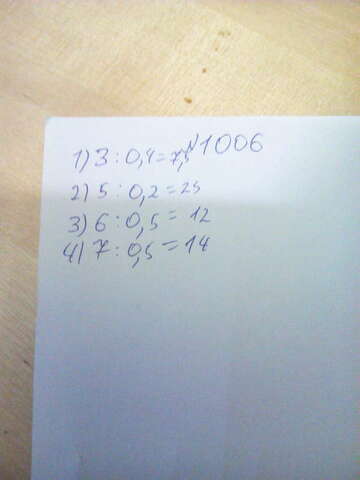 №1006
1) 3 : 0,4 = 7,5
2) 5 : 0,2 = 25
3) 6 : 0,5 = 12
4) 7 : 0,5 = 14